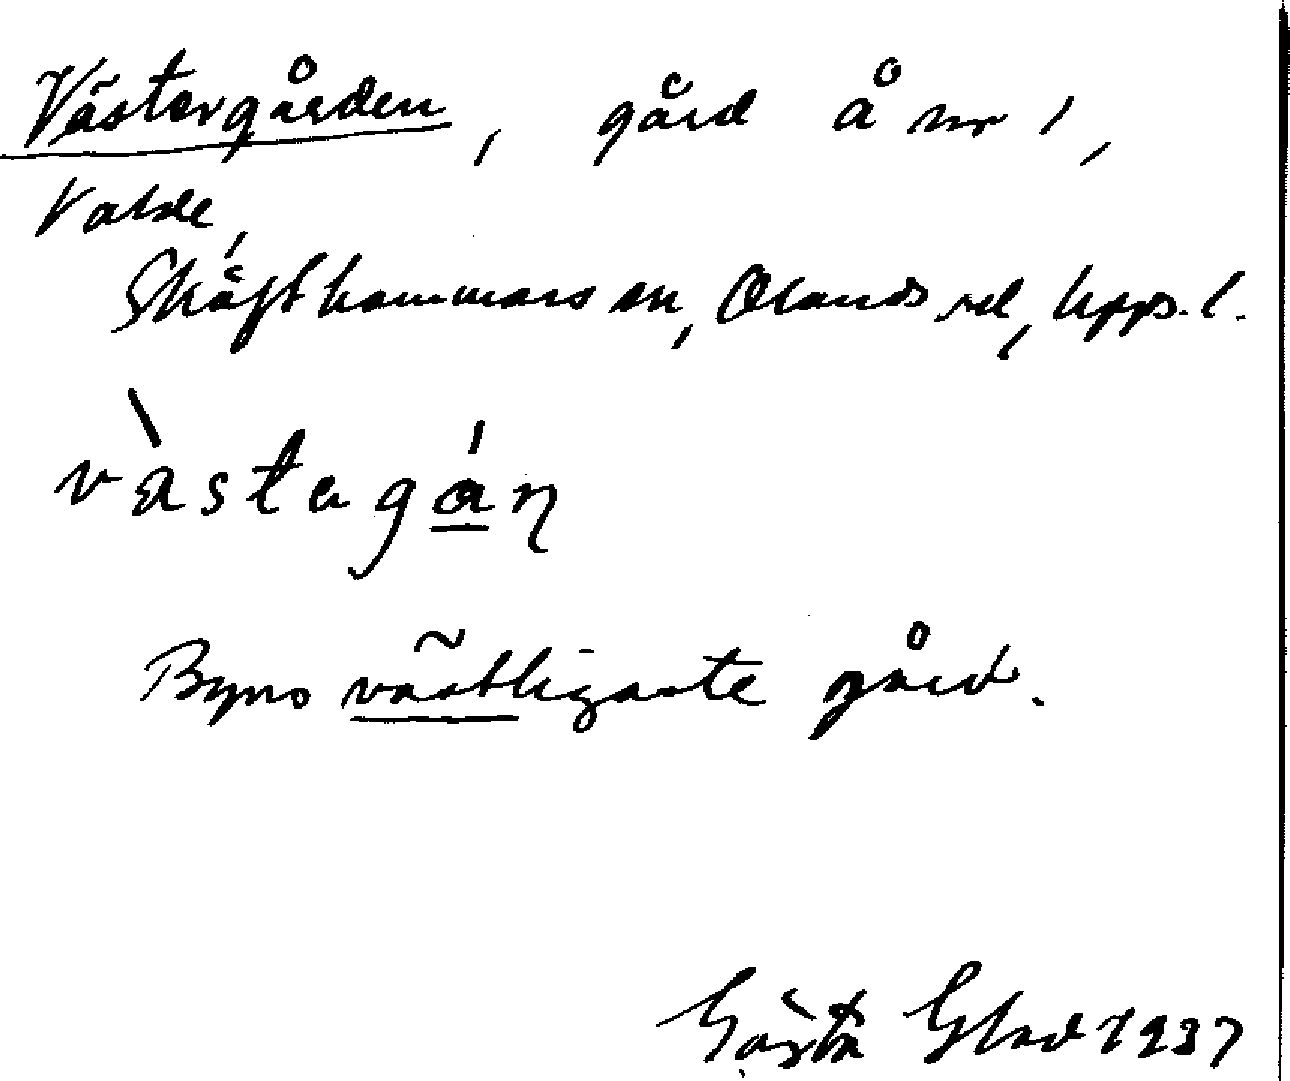 Västergården, gård å nr 1,
Valde,
Skäfthammars sn, Olands hd, Upps. l.
vàstagán
Byns västligaste gård.
Gösta Glad 1937